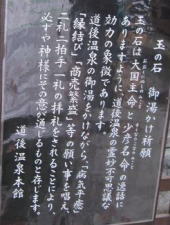 玉の石 御湯かけ祈願
玉の石は大国主命と少彦名命の逸話に
ありますように、道後温泉の霊妙不可思議な
効力の象徴であります。
道後温泉の御湯をかけながら、「病気平癒」
「縁結び」「商売繁盛」等の願い事を唱え
二礼二拍手一礼の拝礼をされることにより、
必ずや神様にその意が通じるものと存じます。
道後温泉本館